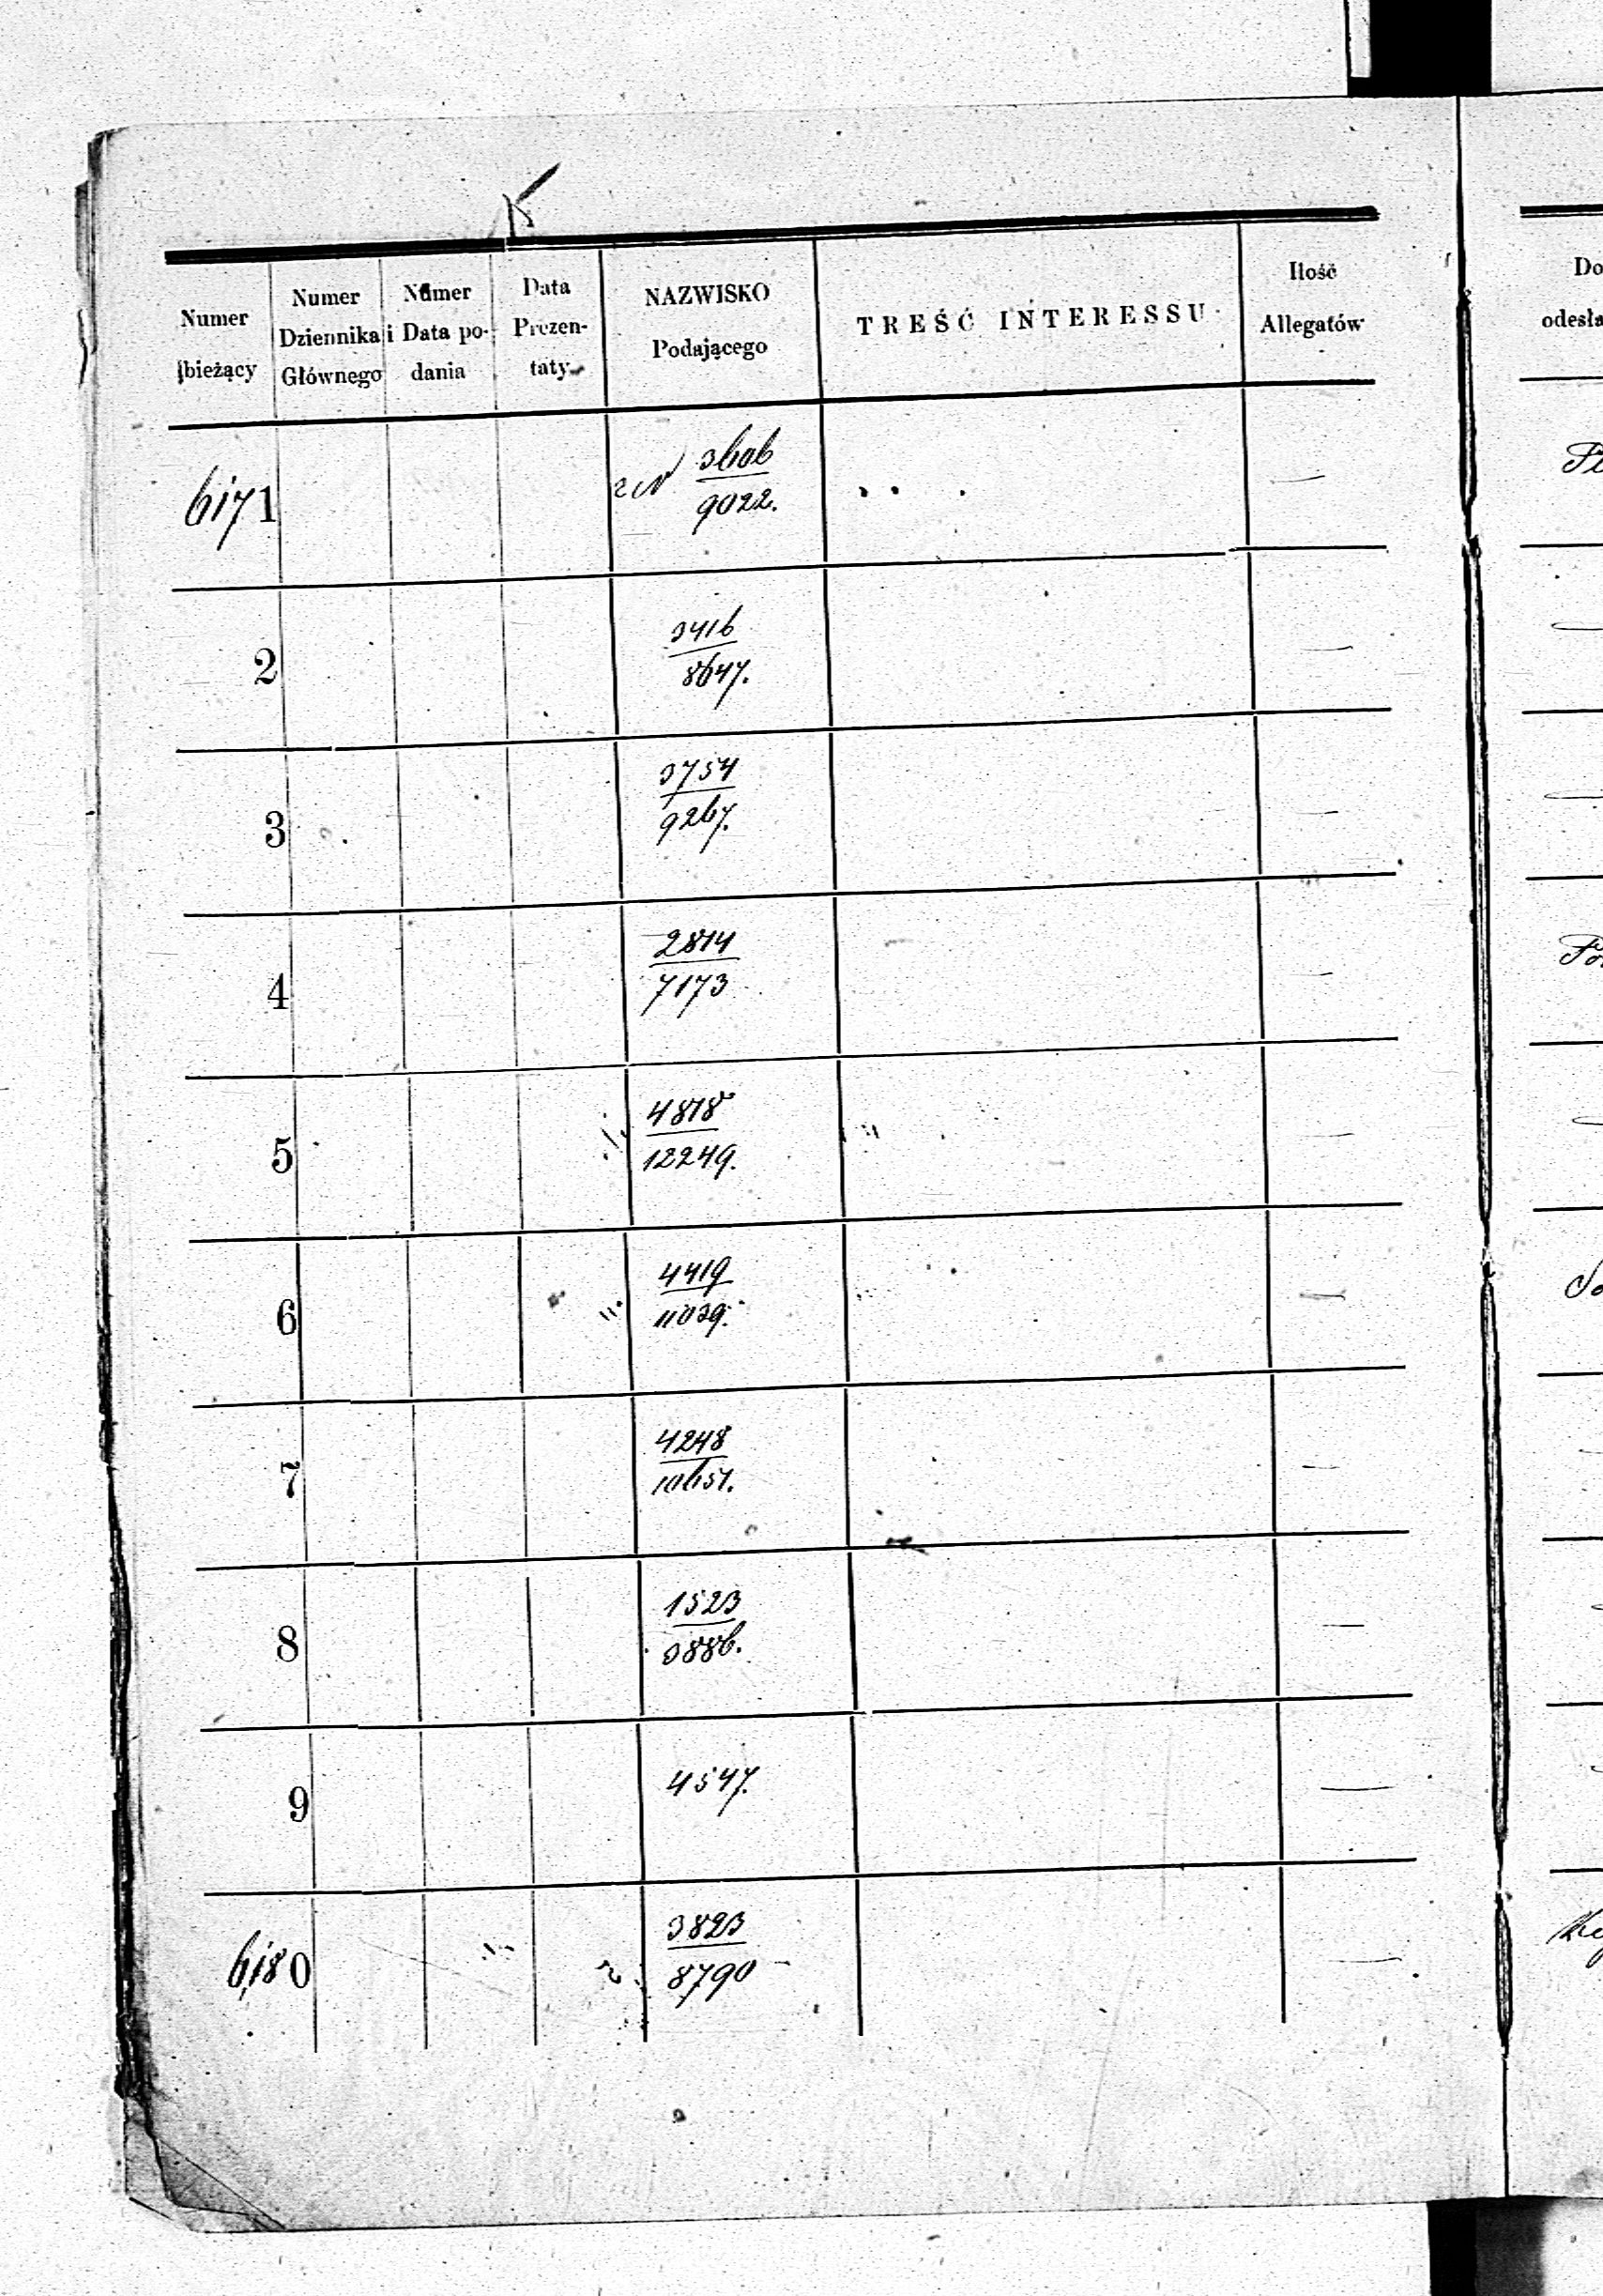 Numer bieżący
Numer Dziennika Głównego
Numer i Data podania
Data Prezentaty
NAZWISKO Podającego
TREŚĆ INTERESSU
Ilość Allegatów
Do
odesła
6171
3606
9022.
2
3416
8647.
3
3754
9267.
4
2814
7173
5
4818
12249.
6
4419
11039.
7
4248
10651.
8
1523
3886.
9
4547.
6180
3823
8790